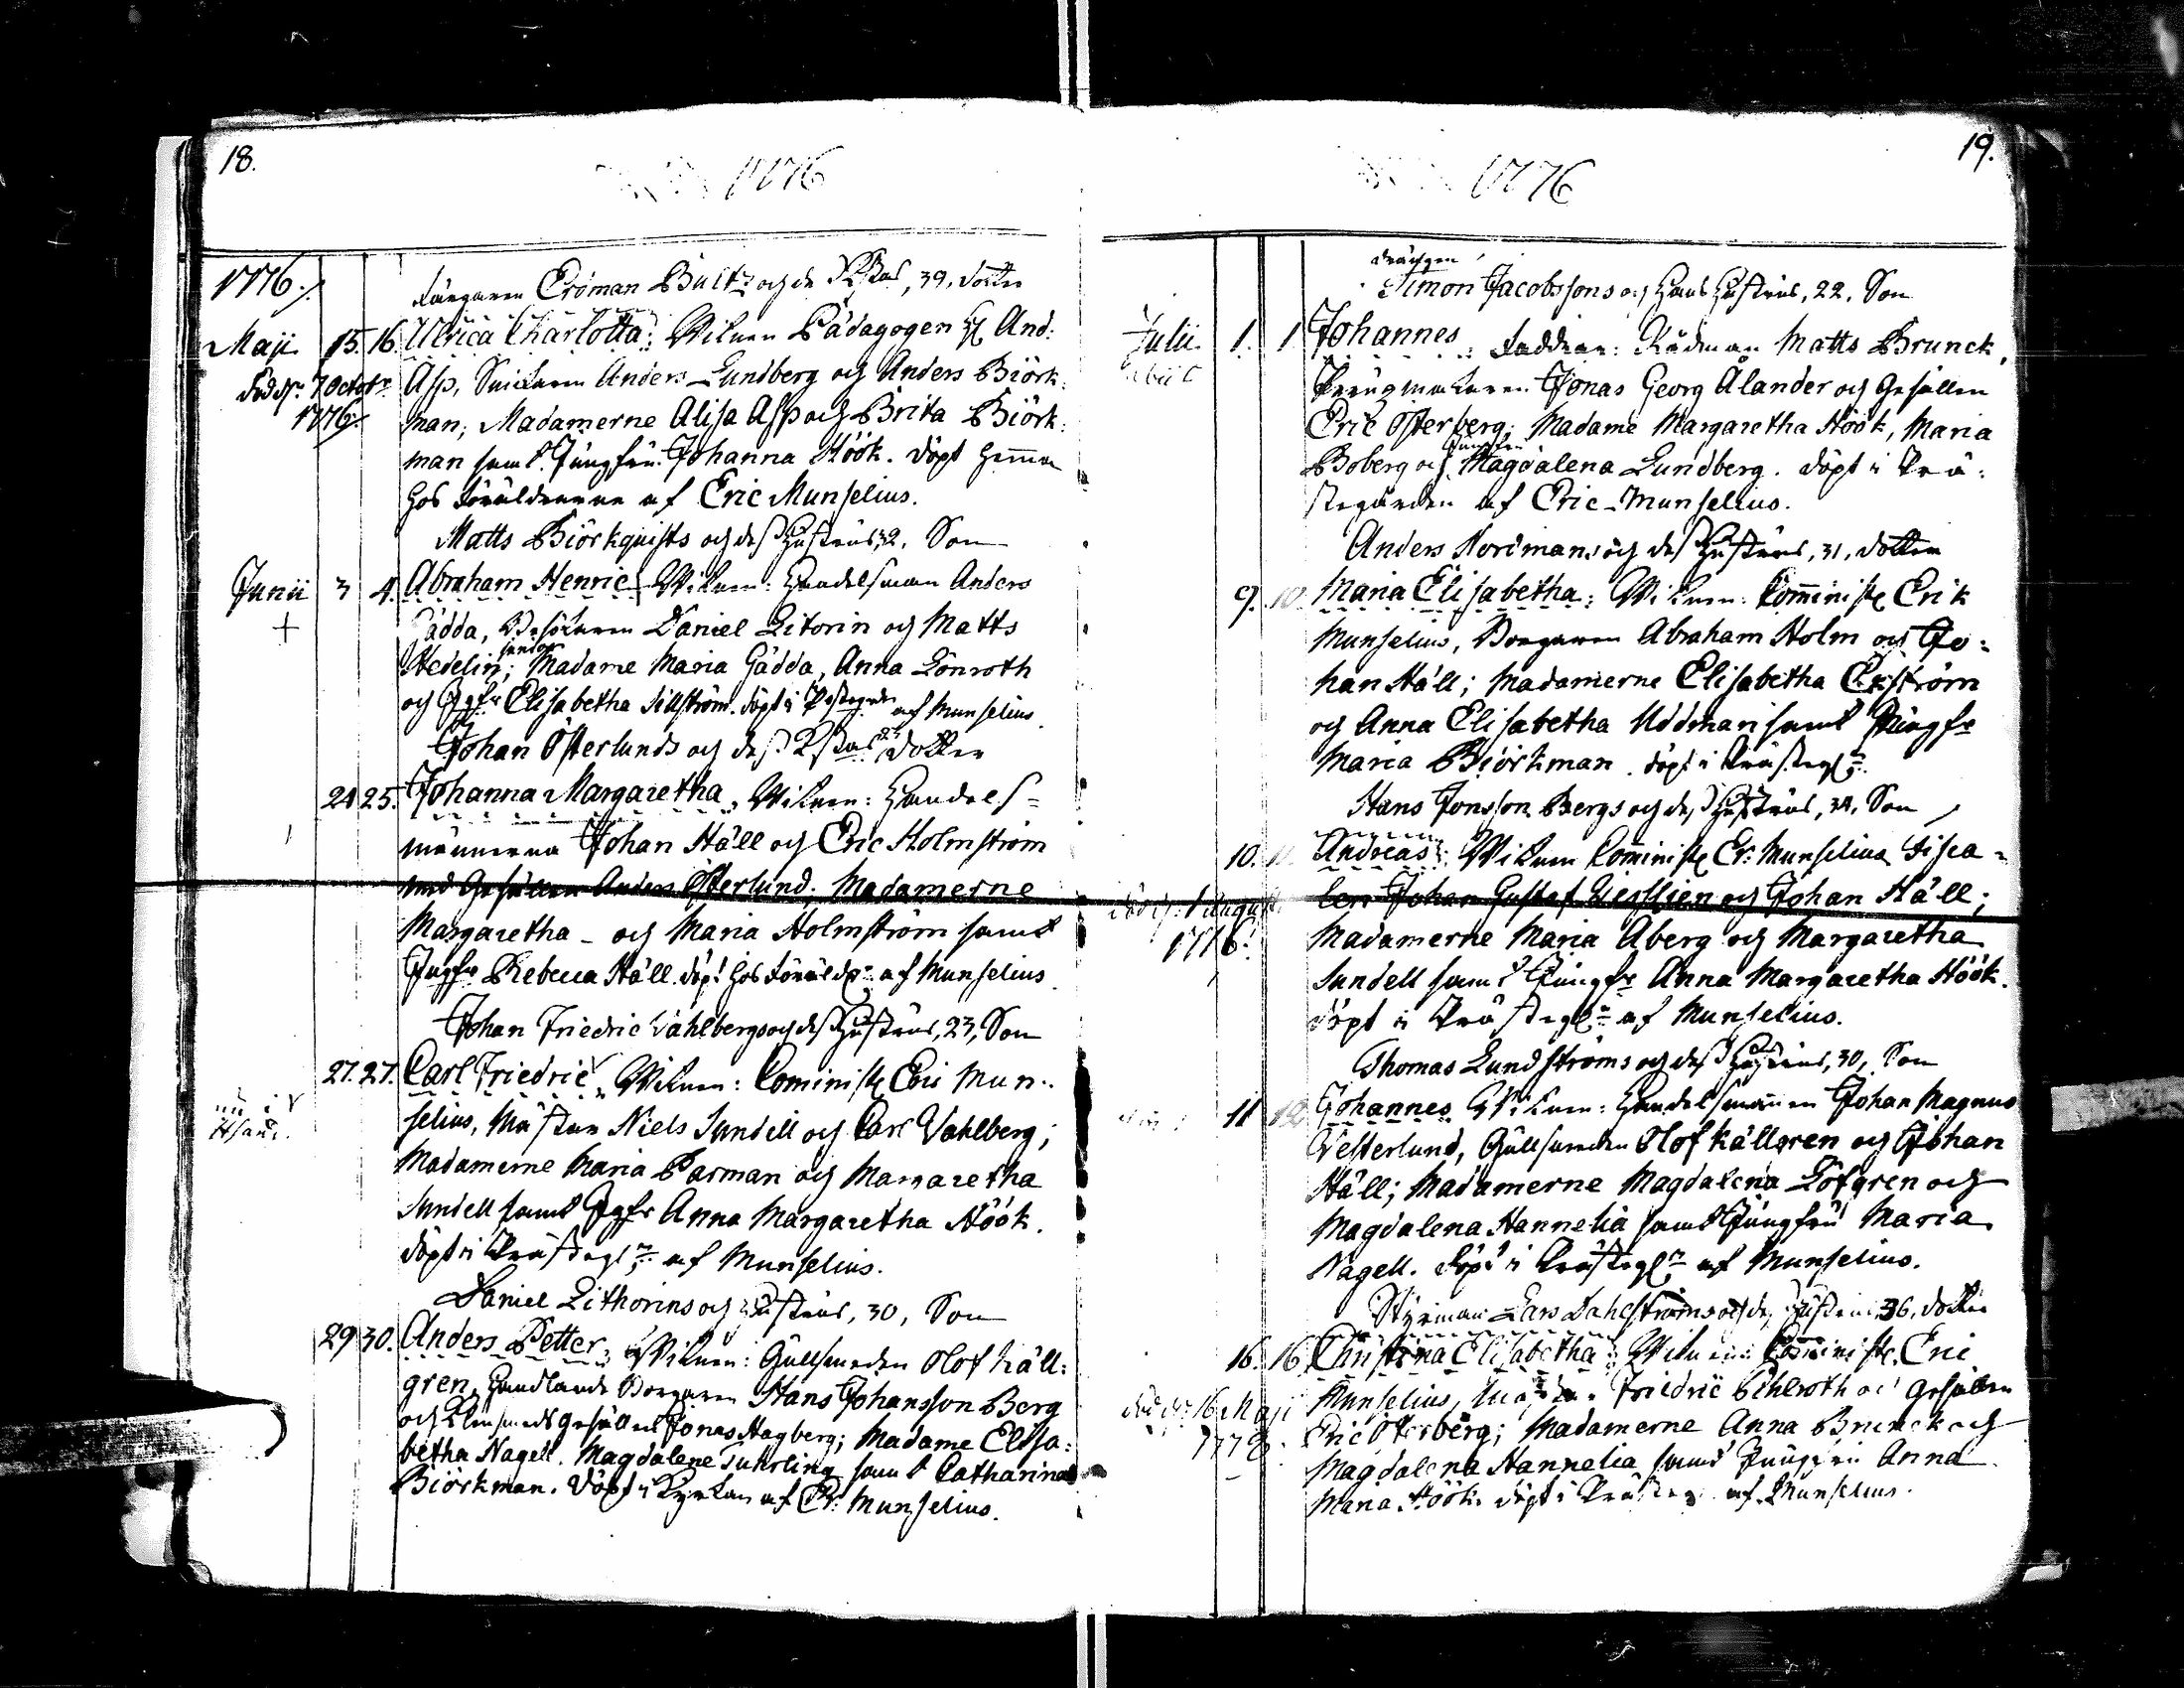 18.
1776
1776.
Färgaren Erdman Bultz och des K. Hus, 39, dotter
Maji 15. 16. Ulrica Charlotta; Witnen Pädagogen H And:
död d. 7 Octobr Asp, Snickaren Anders Lundberg och Anders Biörk:
1776. man; Madamerne Alisa Asp och Brita Biörk:
man samt Jungfru Johanna Höök. döpt hemma
hos föräldrarne af Eric Munselius.
Matts Biörkquists och dess hustrus, 32, Son
Junii 3 4. Abraham Henric; Witnen: Handelsman Anders
+ Gädda, Besökaren Daniel Litorin och Matts
Hedelin; Madame Maria Gädda, Anna Lönroth
och Jgfr Elisabetha Sillström. döpt i Prestegården af Munselius.
Johan Österlunds och dess dotter
24 25. Johanna Margaretha, Witnen: Handels=
männerna Johan Häll och Eric Holmström
med Gesällen Anders Österlund; Madamerne
Margaretha - och Maria Holmström samt
Jugfr Rebecca Häll. döpt hos föräldr: af Munselius.
Johan Friedric Vahlbergs och dess hustrus, 23, Son
27. 27. Carl Friedric, Witnen: Cominist Eric Mun:
selius, Mästar Niels Sundell och Carl Vahlberg;
Madamerne Maria Parman och Margaretha
Sundell samt Jgfr Anna Margaretha Höök.
döpt i Prästeg: af Munselius.
Daniel Lithorins och hustrus, 30, Son
29 30. Anders Petter; Witnen: Gullsmeden Olof Käll:
gren, Handlande Borgaren Hans Johansson Berg
och Gesällen Jonas Hagberg; Madame Elisa:
betha Nagell. Magdalene Tuhrling samt Catharina
Biörkman. Döpt i Kyrkan af Er: Munselius.
19.
1776
drängen
Simon Jacobssons och hans hustrus, 22, Son
Julii 1. 1 Johannes; Faddrar: Rådman Matts Brunck,
Perugmakaren Jonas Georg Ålander och Gesällen
Eric Österberg; Madame Margaretha Höök, Maria
Boberg och Jungfru Magdalena Lundberg. döpt i Prä:
stegården af Eric Munselius.
Anders Nordmans och dess hustrus, 31, dotter
9. 10. Maria Elisabetha; Witnen: Comminist Erik
Munselius, Borgaren Abraham Holm och Jo:
han Häll; Madamerne Elisabetha Ekström
och Anna Elisabetha Uddman samt Jungfr
Maria Biörkman. döpt i Prästeg:
Hans Jonsson Bergs och dess hustrus, 34, Son
10. 11. Andreas; Witnen Cominist Er: Munselius Fisca=
död d. 1 August len Johan Gustaf och Johan Häll;
1776. Madamerne Maria Åberg och Margaretha
Sundell samt Jungfr Anna Margaretha Höök.
döpt i Prästeg: af Munselius.
Thomas Lundströms och dess hustrus, 30, Son
11 12 Johannes Witnen: Handelsmannen Johan Magnus
Vesterlund, Gullsmeden Olof Källgren och Johan
Häll; Madamerne Magdalena Löfgren och
Magdalena Hannelia samt Jungfru Maria
Nagell. Döpt i Prästeg: af Munselius.
Styrman Lars Dahlströms och dess hustrus 36, dotter
16. 16 Christina Elisabetha; Witnen: Comminist. Eric
död d. 16 Maji Munselius, Friedric Ehlroth och Gesällen
1778. Eric Österberg; Madamerne Anna Brunck och
Magdalena Hannelia samt Jungfru Anna
Maria Höök. döpt i Prästeg. af Munselius.